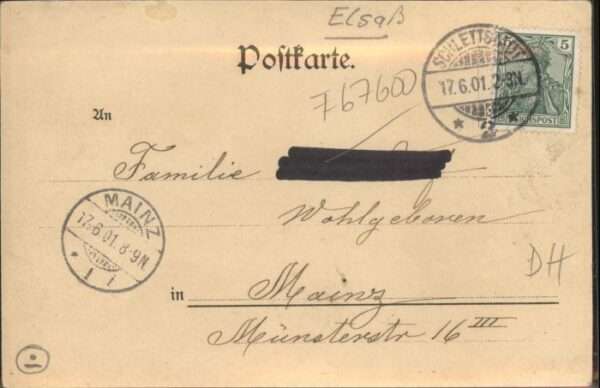 Elsaß
Postkarte.
SCHLETTSTADT
17.6.01.8-9N.
5
REICHSPOST
767600
An
Familie
Wohlgeboren
MAINZ
17.6.01.8-9N
* 1 i
DH
in Mainz
Münsterstr 16 III